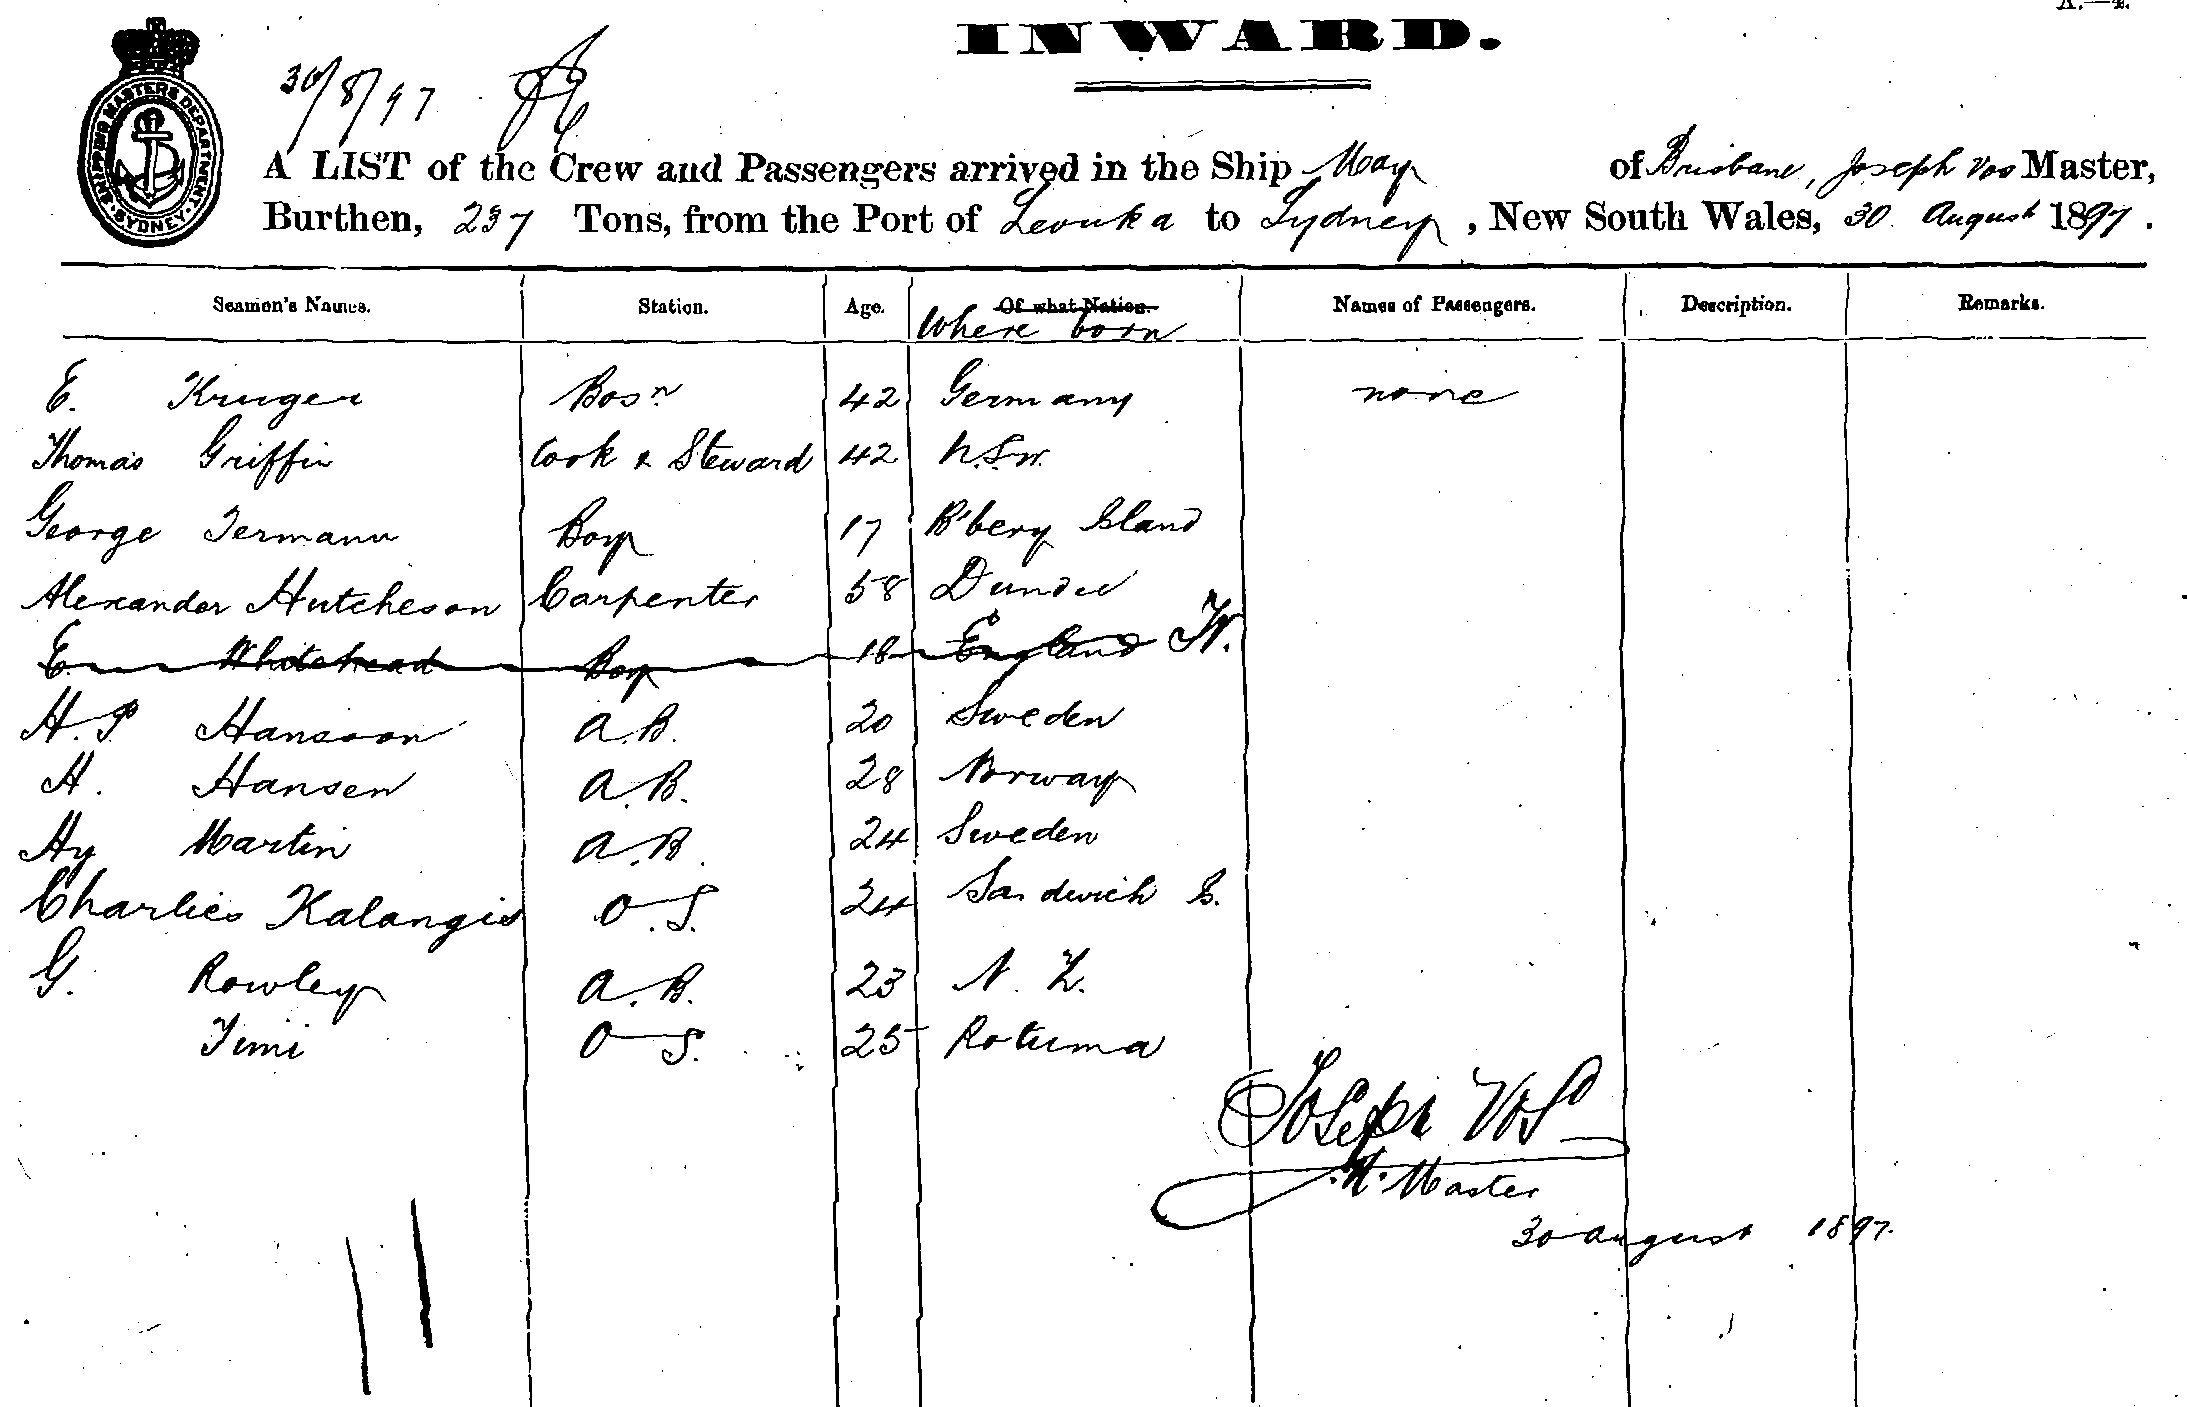 A.—4.
INWARD.
30/8/97
SHIPPING MASTERS DEPARTMENT. SYDNEY
A LIST of the Crew and Passengers arrived in the Ship May of Brisbane, Joseph Vos Master,
Burthen, 237 Tons, from the Port of Levuka to Sydney, New South Wales, 30 August 1897.
Seamen's Names. Station. Age. Of what Nation. Names of Passengers. Description. Remarks.
Where born
E. Kruger Bosn 42 Germany none
Thomas Griffin Cook & Steward 42 N.S.W.
George Termann Boy 17 B'bery Island
Alexander Hutcheson Carpenter 58 Dundee
E. Whitehead Boy 18 England W.
H. P Hansson A.B. 20 Sweden
H. Hansen A.B. 28 Norway
Hy Martin A.B. 24 Sweden
Charlies Kalangis O.S. 24 Sandwich Is.
G. Rowley A.B. 23 N. Z.
Timi O S. 25 Rotuma
Joseph Vos
Master
30 August 1897.
11